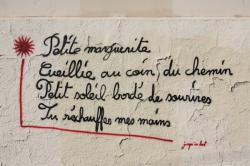 Petite marguerite
Cueillie au coin du chemin
Petit soleil bordé de sourires
Tu réchauffes mes mains